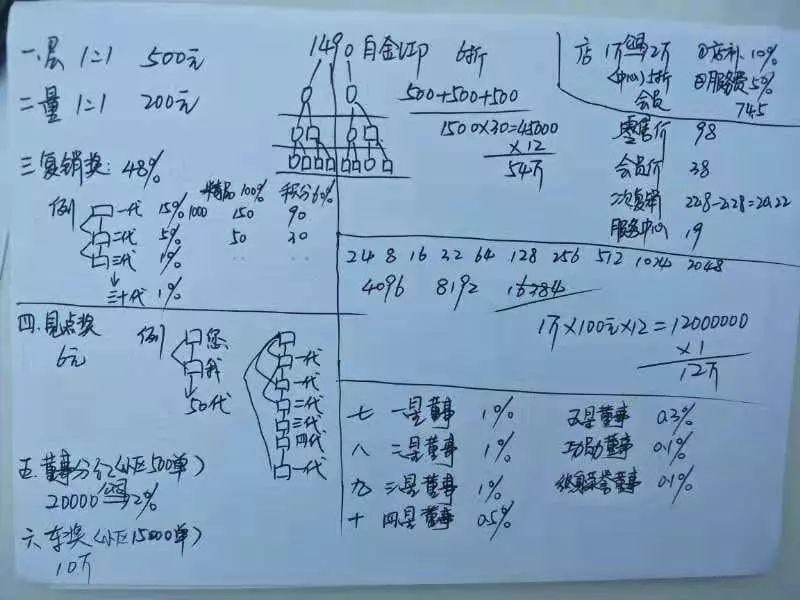 一.层 1:1 500元
二量 1:1 200元
三复销奖: 48%
精品100% 积分60%
例 一代 15% 1000 150 90
二代 5% 50 30
三代 1%
三十代 1%
四.见点奖
6元
例 您
我
50代
一代
一代
二代
三代
四代
一代
五.董事分红(小区500单)
20000 2%
六车奖(小区15000单)
10万
1490白金VIP 6折
500+500+500
1500×30=45000
×12
54万
店 1万 2万 ①店补10%
(中心) 5折 ②服务费5%
会员 745
零售价 98
会员价 38
二次复销 228-228=20.22
服务中心 19
2 4 8 16 32 64 128 256 512 1024 2048
4096 8192 16384
1万×100元×12=12000000
×1
12万
七 一星董事 1% 五星董事 0.3%
八 二星董事 1% 功勋董事 0.1%
九 三星董事 1% 终身荣誉董事 0.1%
十 四星董事 0.5%